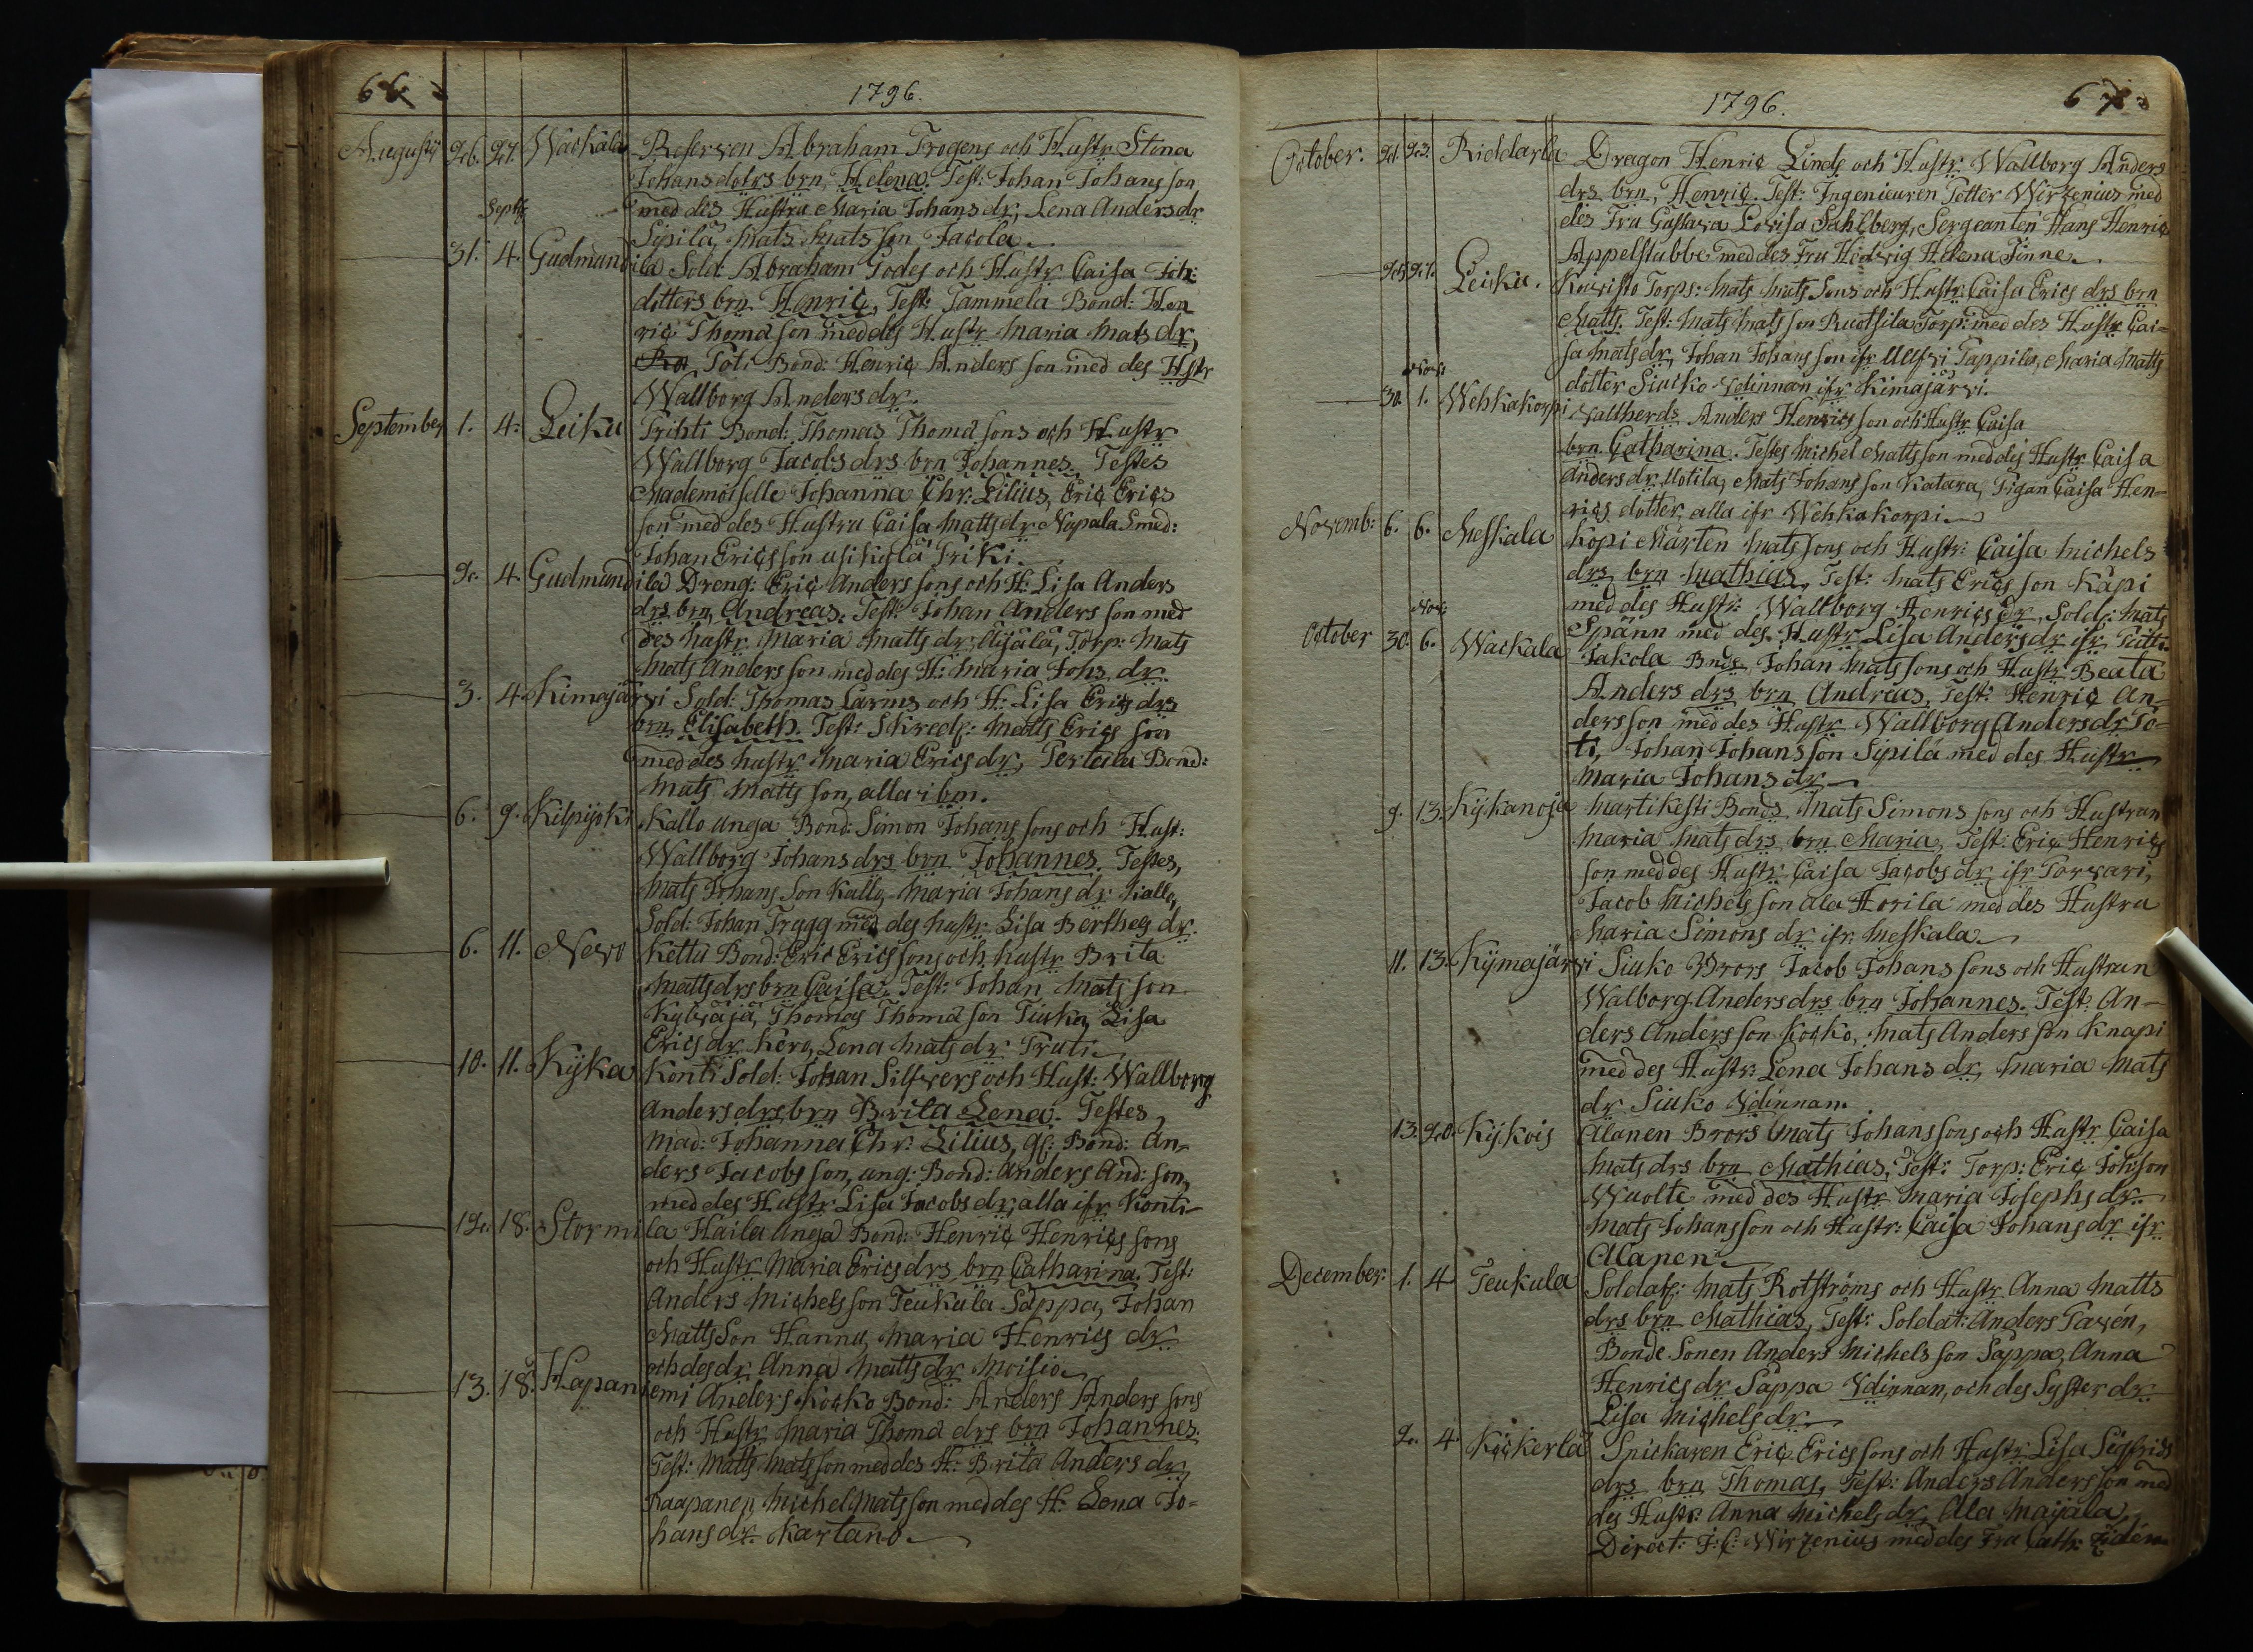 66
1796.
Augusti 26. 27. Wackala Reserven Abraham Frogens och Hustr Stina
Johansdotrs brn, Helena. Test: Johan Johansson
med des Hustru Maria Johans dr, Lena Andersdr
Sipilä, Mats Mats son Jacola.
Septb
31. 4. Gudmundila Sold: Abraham Godes och Hustr Caisa Joh:
dotters brn Henric, Test: Tammela Bond: Hen
ric Thomä son med des Hustr Maria Mats dr,
Toti Bond: Henric Anders son med des Hstr
Wallborg Anders dr.
September 1. 4. Leiku Prihti Bond: Thomas Thomä sons och Hustr
Wallborg Jacobs drs brn Johannes. Testes
Mademoiselle Johanna Chr: Lilius, Eric Erics
son med des Hustru Caisa Matts dr Napala Smed:
Johan Ericsson Priki.
2. 4. Gudmundila Dreng: Eric Anders sons och H: Lisa Anders
drs brn, Andreas. Test: Johan Anders son med
des hustr Maria Matts dr Äijälä, Torp: Mats
Mats Anders son med des H: Maria Johs dr
3. 4. Kimajärvi Sold: Thomas Larms och H: Lisa Erics drs
brn, Elisabeth. Test: Skredd: Matts Erics son
med des hustr Maria Erics dr, Pertula Bond:
Mats Matts son, alla i bm.
6. 9. Kilpijoki Kallo unga Bond: Simon Johans sons och Hust:
Wallborg Johans drs brn Johannes. Testes,
Mats Johans Son Kallo, Maria Johans dr Kallo,
Sold: Johan Trygg med des hustr Lisa Berthels dr.
6. 11. Nevo Kettu Bond: Eric Erics sons och hustr Brita
Matts drs brn Caisa. Test: Johan Mats son
Kylväjä, Thomas Thomä son Tiuku, Lisa
Erics dr Kero, Lena Mats dr Pruti
10. 11. Kyka Konti Sold: Johan Silfvers och Hust: Wallborg
Anders drs brn Brita Lena. Testes
Mad: Johanna Chr: Lilius, gl: Bond: An-
ders Jacobs son, ung: Bond: Anders And: son,
med des Hustr Lisa Jacobs dr, alla ifr Konti
12. 18. Stormila Haila unga Bond: Henric Henrics sons
och Hustr Maria Erics drs brn Catharina. Test:
Anders Michels son Teukula Säppä, Johan
Matts Son Hannu, Maria Henrics dr
och des dr Anna Matts dr Moisio
13. 18. Hapaniemi Anders Kocko Bond: Anders Anders sons
och Hustr Maria Thomä drs brn Johannes.
Test: Matts Mats son med des H: Brita Anders dr,
Raapanen, Michel Mats son med des H: Lena Jo-
hans dr Kartano.
1796.
67
October. 21. 23. Riddarla Dragon Henric Linds och Hustr Wallborg Anders
drs brn, Henric. Test: Ingenieuren Petter Wirzenius med
des Fru Gustava Lovisa Sahlberg, Sergeanten Hans Henric
Appelstubbe med des Fru Hedvig Helena Finne.
25. 27. Leiku. Kouristo Torps: Mats Mats Sons och Hustr: Caisa Erics drs brn
Matts. Test: Mats Mats son Ruotsila Torp: med des Hustr Cai-
sa Mats dr, Johan Johans son ifr Ulfvi Pappila, Maria Matts
dotter Siucko Ydinnan ifr Kimajärvi.
Nov:
30. 1. Wehkakorpi Vallherds Anders Henrics son och Hustr Caisa
brn Catharina. Testes Michel Matts son med des Hustr Caisa
Anders dr Uotila, Mats Johans son Katara, Pigan Caisa Hen-
rics dotter, alla ifr Wehkakorpi
Novemb: 6. 6. Meskala Köpi Mårten Mats sons och Hustr: Caisa Michels
drs brn Mathias, Test: Mats Erics son Käpi
med des Hustr: Wallborg Henrics dr, Sold: Mats
Spänn med des Hustr Lisa Anders dr ifr
Nov:
October 30. 6. Wackala Jakola Bnds Johan Mats sons och Hustr Beata
Anders drs brn Andreas, Test: Henric An-
ders son med des Hustr Wallborg Anders dr To-
ti, Johan Johans son Sipilä med des Hustr
Maria Johans dr
9. 13. Kijkanoja Martikesti Bonds Mats Simons sons och Hustrun
Maria Mats drs brn Maria, Test: Eric Henrics
son med des Hustr Caisa Jacobs dr ifr Porvari,
Jacob Michels son Ala Horila med des Hustru
Maria Simons dr ifr Meskala
11. 13. Kijmajärvi Siuko Brors Jacob Johans sons och Hustrun
Walborg Anders drs brn Johannes. Test An-
ders Anders son Kocko, Mats Anders son Knapi
med des Hustr: Lena Johans dr, Maria Mats
dr Siuko Ydinnan.
13. 20. Kijkois Alanen Brors Mats Johans sons och Hustr Caisa
Mats drs brn Mathias, Test: Torp: Eric Joh: son
Wuolte med des Hustr Maria Josephs dr
Mats Johansson och Hustr: Caisa Johans dr ifr
Alanen
December: 1. 4 Teukula Soldat: Mats Rotströms och Hustr Anna Matts
drs brn Mathias, Test: Soldat: Anders Pavén,
Bonde Sonen Anders Michels son Säppä, Anna
Henrics dr Säppä Ydinnan, och des Syster dr
Lisa Michels dr
2. 4. Köckerlä Spickaren Eric Erics sons och Hustr Lisa Sigfrids
drs brn Thomas, Test: Anders Anders son med
des Hustr Anna Michels dr, Ala Maijala,
Direct: J: C: Wirzenius med des Fru Cath: Zidén